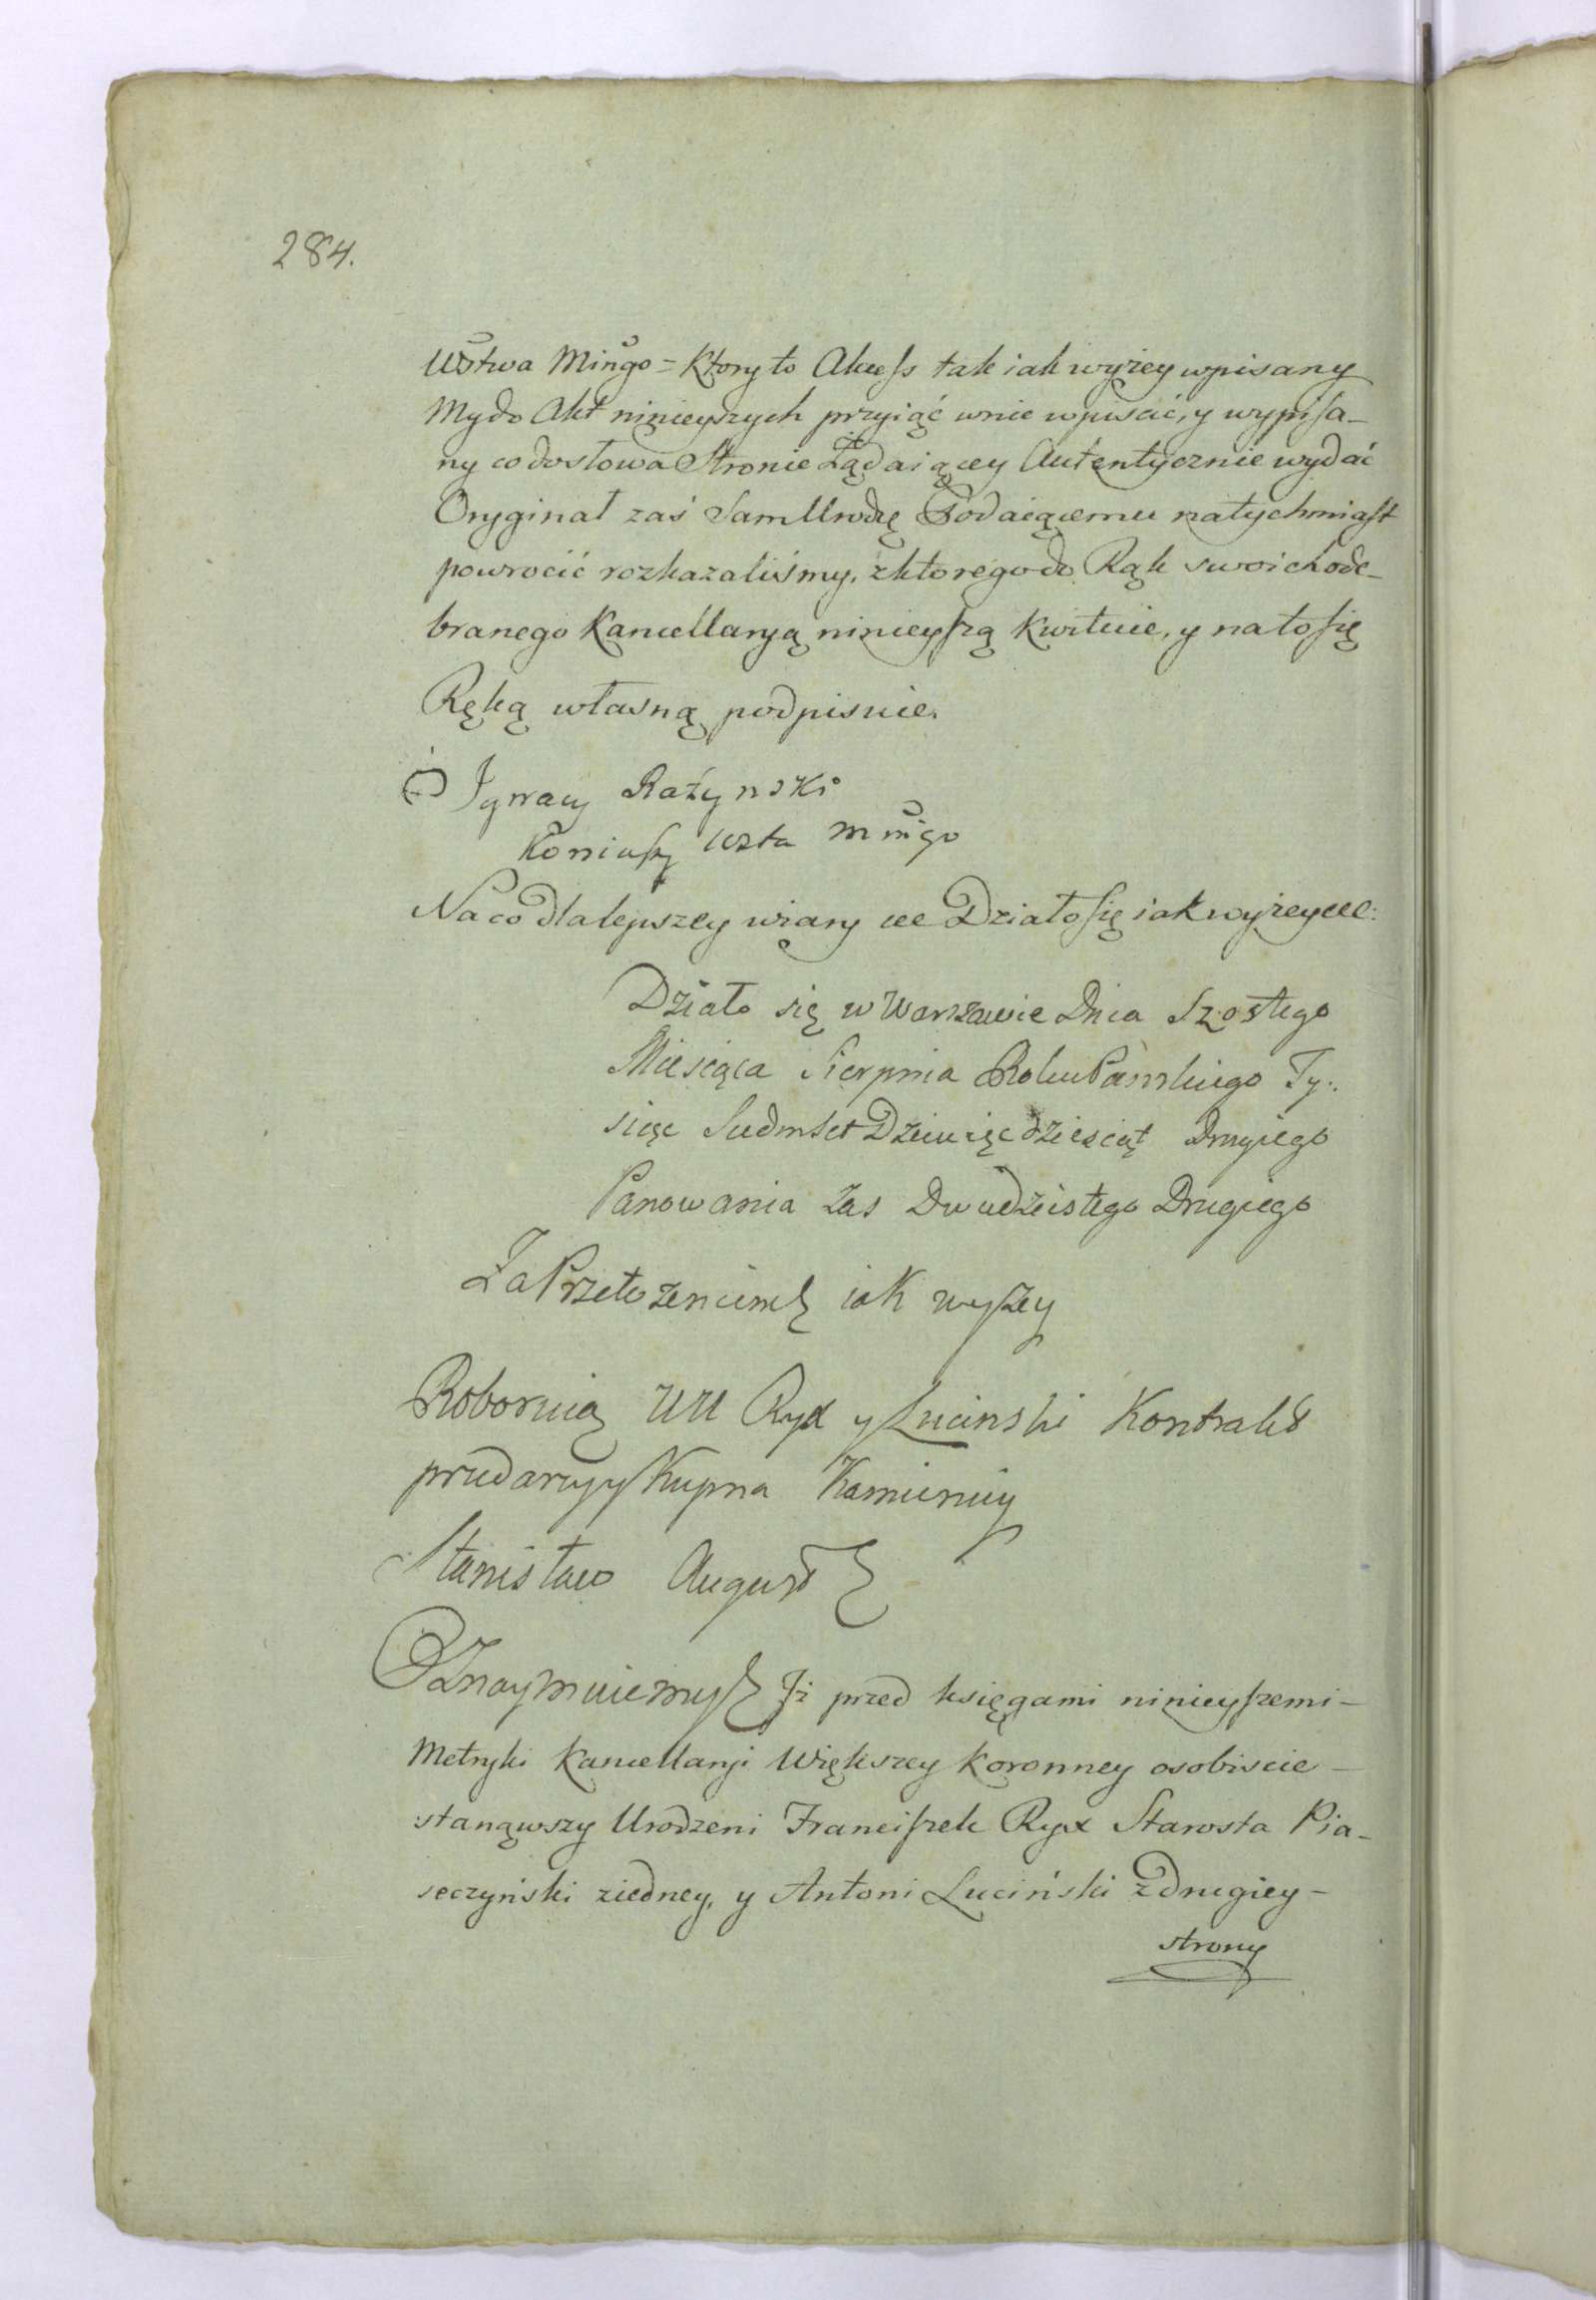 284.
Wstwa Mingo = Ktory to Akcess tak iak wyżey wpisany
My do Akt ninieyszych przyiąć w nie wpiscić, y wypisa-
ny co do słowa Stronie Żądaiącey Autentycznie wydać
Oryginał zaś Sam Urodzę Podaiącemu natychmiast
powrocić rozkazaliśmy, z ktorego do Rąk swoich ode-
branego Kancellaryą ninieyszą kwituie, y na to się
Ręką własną podpisuie.
(-) Ignacy Rażynski
Koniuszy Wzta Mnigo
Na co dla lepszey wiary ee Działo się iak wyżey ee:
Działo się w Warszawie Dnia Szostego
Miesiąca Sierpnia Roku Panskiego Ty:
siąc Siedmset Dziewięcdziesiąt Drugiego
Panowania Zas Dwudziestego Drugiego
Za Przełozeniem iak wyszey
Roboruią UU Ryx y Lucinski Kontrakt
przedarzy y Kupna Kamienicy
Stanisław August
Oznaymuiemy Iż przed księgami ninieyszemi -
Metryki Kancellaryi Większey Koronney osobiscie -
stanąwszy Urodzeni Franciszek Ryx Starosta Pia-
seczyński z iedney, y Antoni Luciński z drugiey -
strony